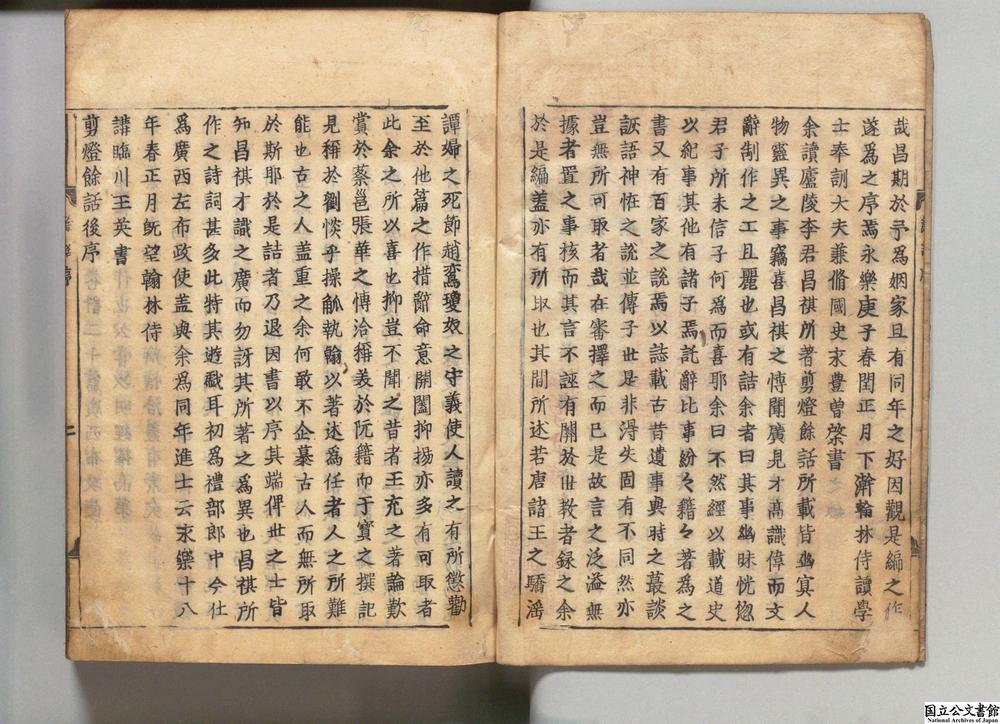 哉昌期於予為姻家且有同年之好因觀是編之作
遂為之序焉永樂庚子春閏正月下澣翰林侍讀學
士奉訓大夫兼脩國史永豊曾棨書
余讀廬陵李君昌祺所著剪燈餘話所載皆幽寘人
物靈異之事竊喜昌祺之愽聞廣見才髙識偉而文
辭制作之工且麗也或有詰余者曰其事幽昧恍惚
君子所未信子何為而喜耶余曰不然經以載道史
以紀事其他有諸子焉託辭比事紛々籍々著為之
書又有百家之説焉以誌載古昔遺事與時之叢談
詼語神恠之説並傳子世是非淂失固有不同然亦
豈無所可取者哉在審擇之而已是故言之泛溢無
據者置之事核而其言不誣有關於世教者録之余
於是編盖亦有所取也其間所述若唐諸王之驕滛
譚婦之死節趙鸞瓊奴之守義使人讀之有所懲勸
至於他篇之作措辭命意開闔抑揚亦多有可取者
此余之所以喜也抑豈不聞之昔者王充之著論歎
賞於蔡邕張華之愽洽稱羙於阮籍而于寳之撰記
見稱於劉惔乎操觚執翰以著述為任者人之所難
能也古之人盖重之余何敢不企慕古人而無所取
於斯耶於是詰者乃退因書以序其端俾世之士皆
知昌祺才識之廣而勿訝其所著之為異也昌祺所
作之詩詞甚多此特其遊戱耳初為禮部郎中今仕
為廣西左布政使盖與余為同年進士云永樂十八
年春正月旣望翰林侍
講臨川王英書
剪燈餘話後序
国立公文書館
National Archives of Japan